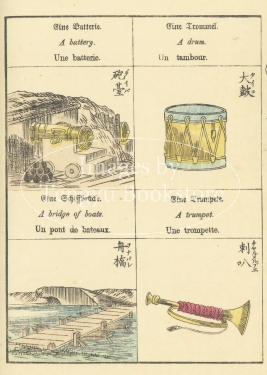 Eine Batterie.
A battery.
Une batterie.
砲臺
Eine Trommel.
A drum.
Un tambour.
大鼓
Eine Schiffbrücke.
A bridge of boats.
Un pont de bateaux.
舟橋
Eine Trompete.
A trumpet.
Une trompette.
喇叭
Images by